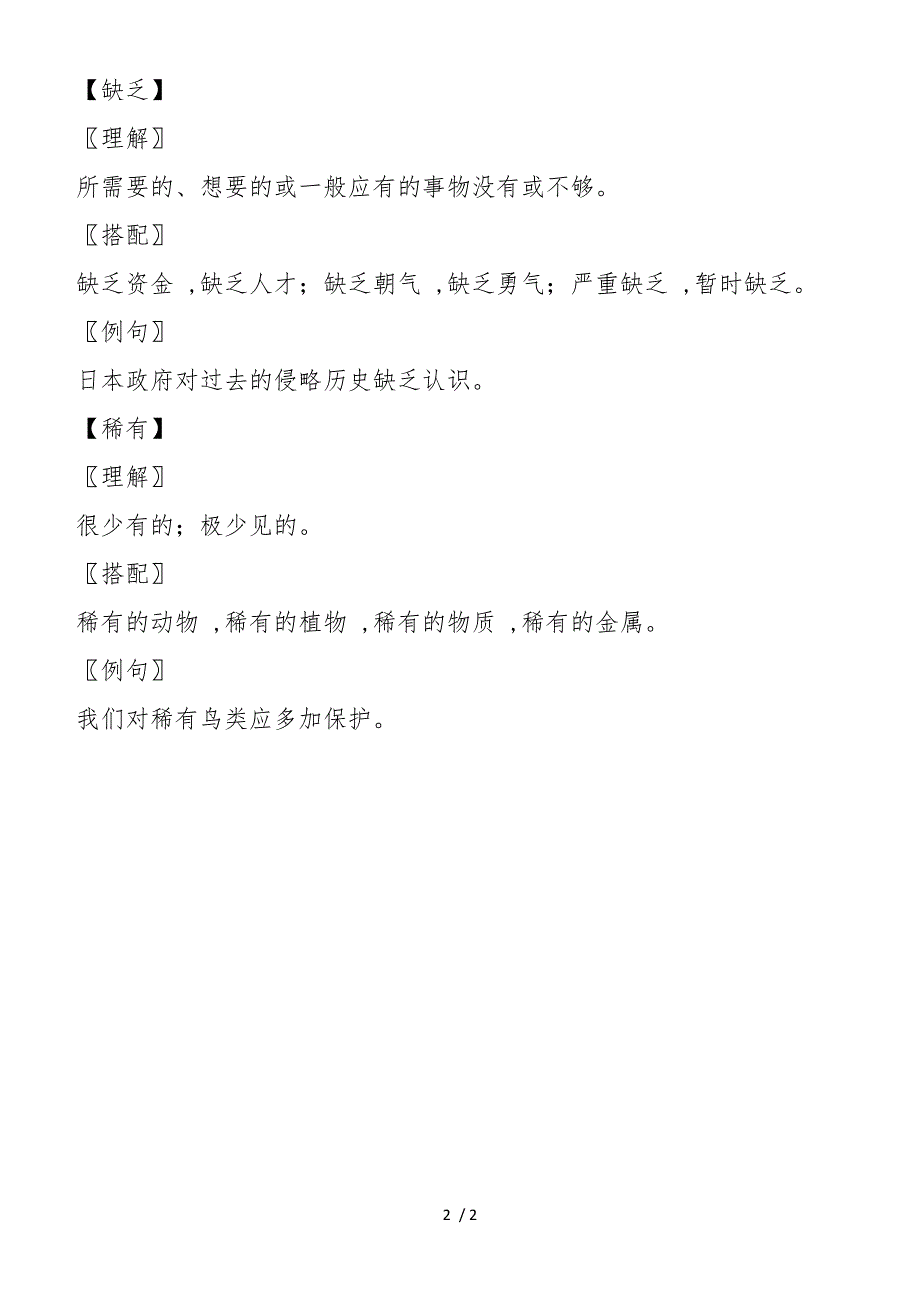 【缺乏】
〖理解〗
所需要的、想要的或一般应有的事物没有或不够。
〖搭配〗
缺乏资金 ,缺乏人才；缺乏朝气 ,缺乏勇气；严重缺乏 ,暂时缺乏。
〖例句〗
日本政府对过去的侵略历史缺乏认识。
【稀有】
〖理解〗
很少有的；极少见的。
〖搭配〗
稀有的动物 ,稀有的植物 ,稀有的物质 ,稀有的金属。
〖例句〗
我们对稀有鸟类应多加保护。
2 / 2